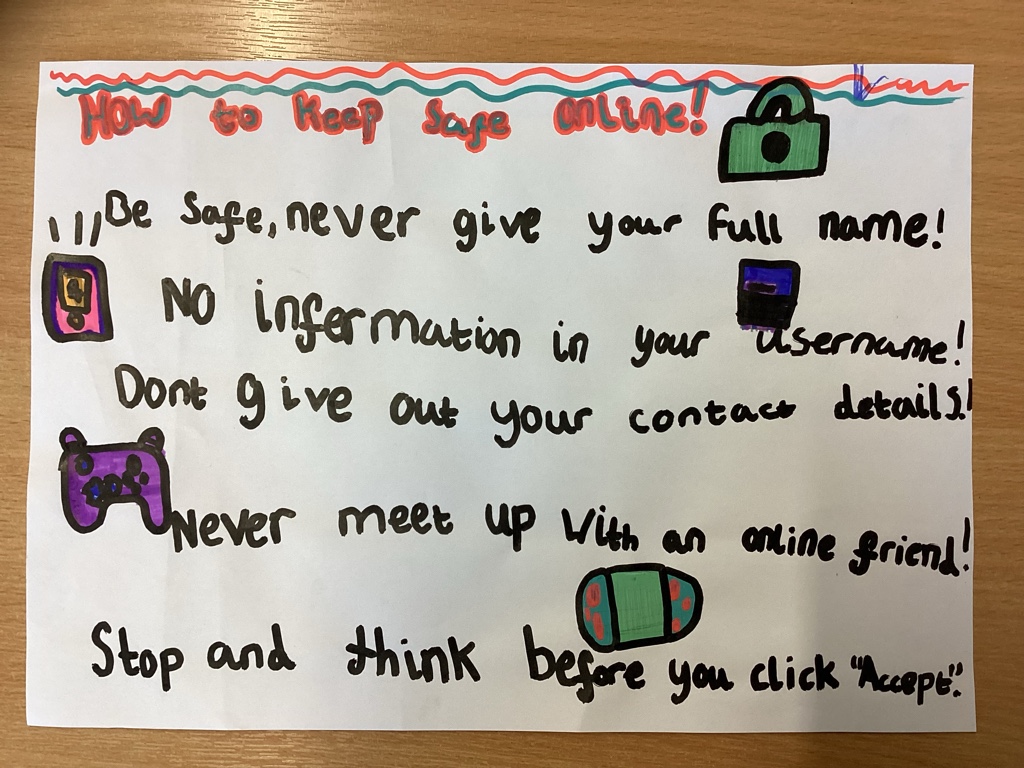 How to Keep Safe online!
Be Safe, never give your full name!
No infermation in your username!
Dont give out your contact details!
Never meet up with an online friend!
Stop and think before you click "Accept".